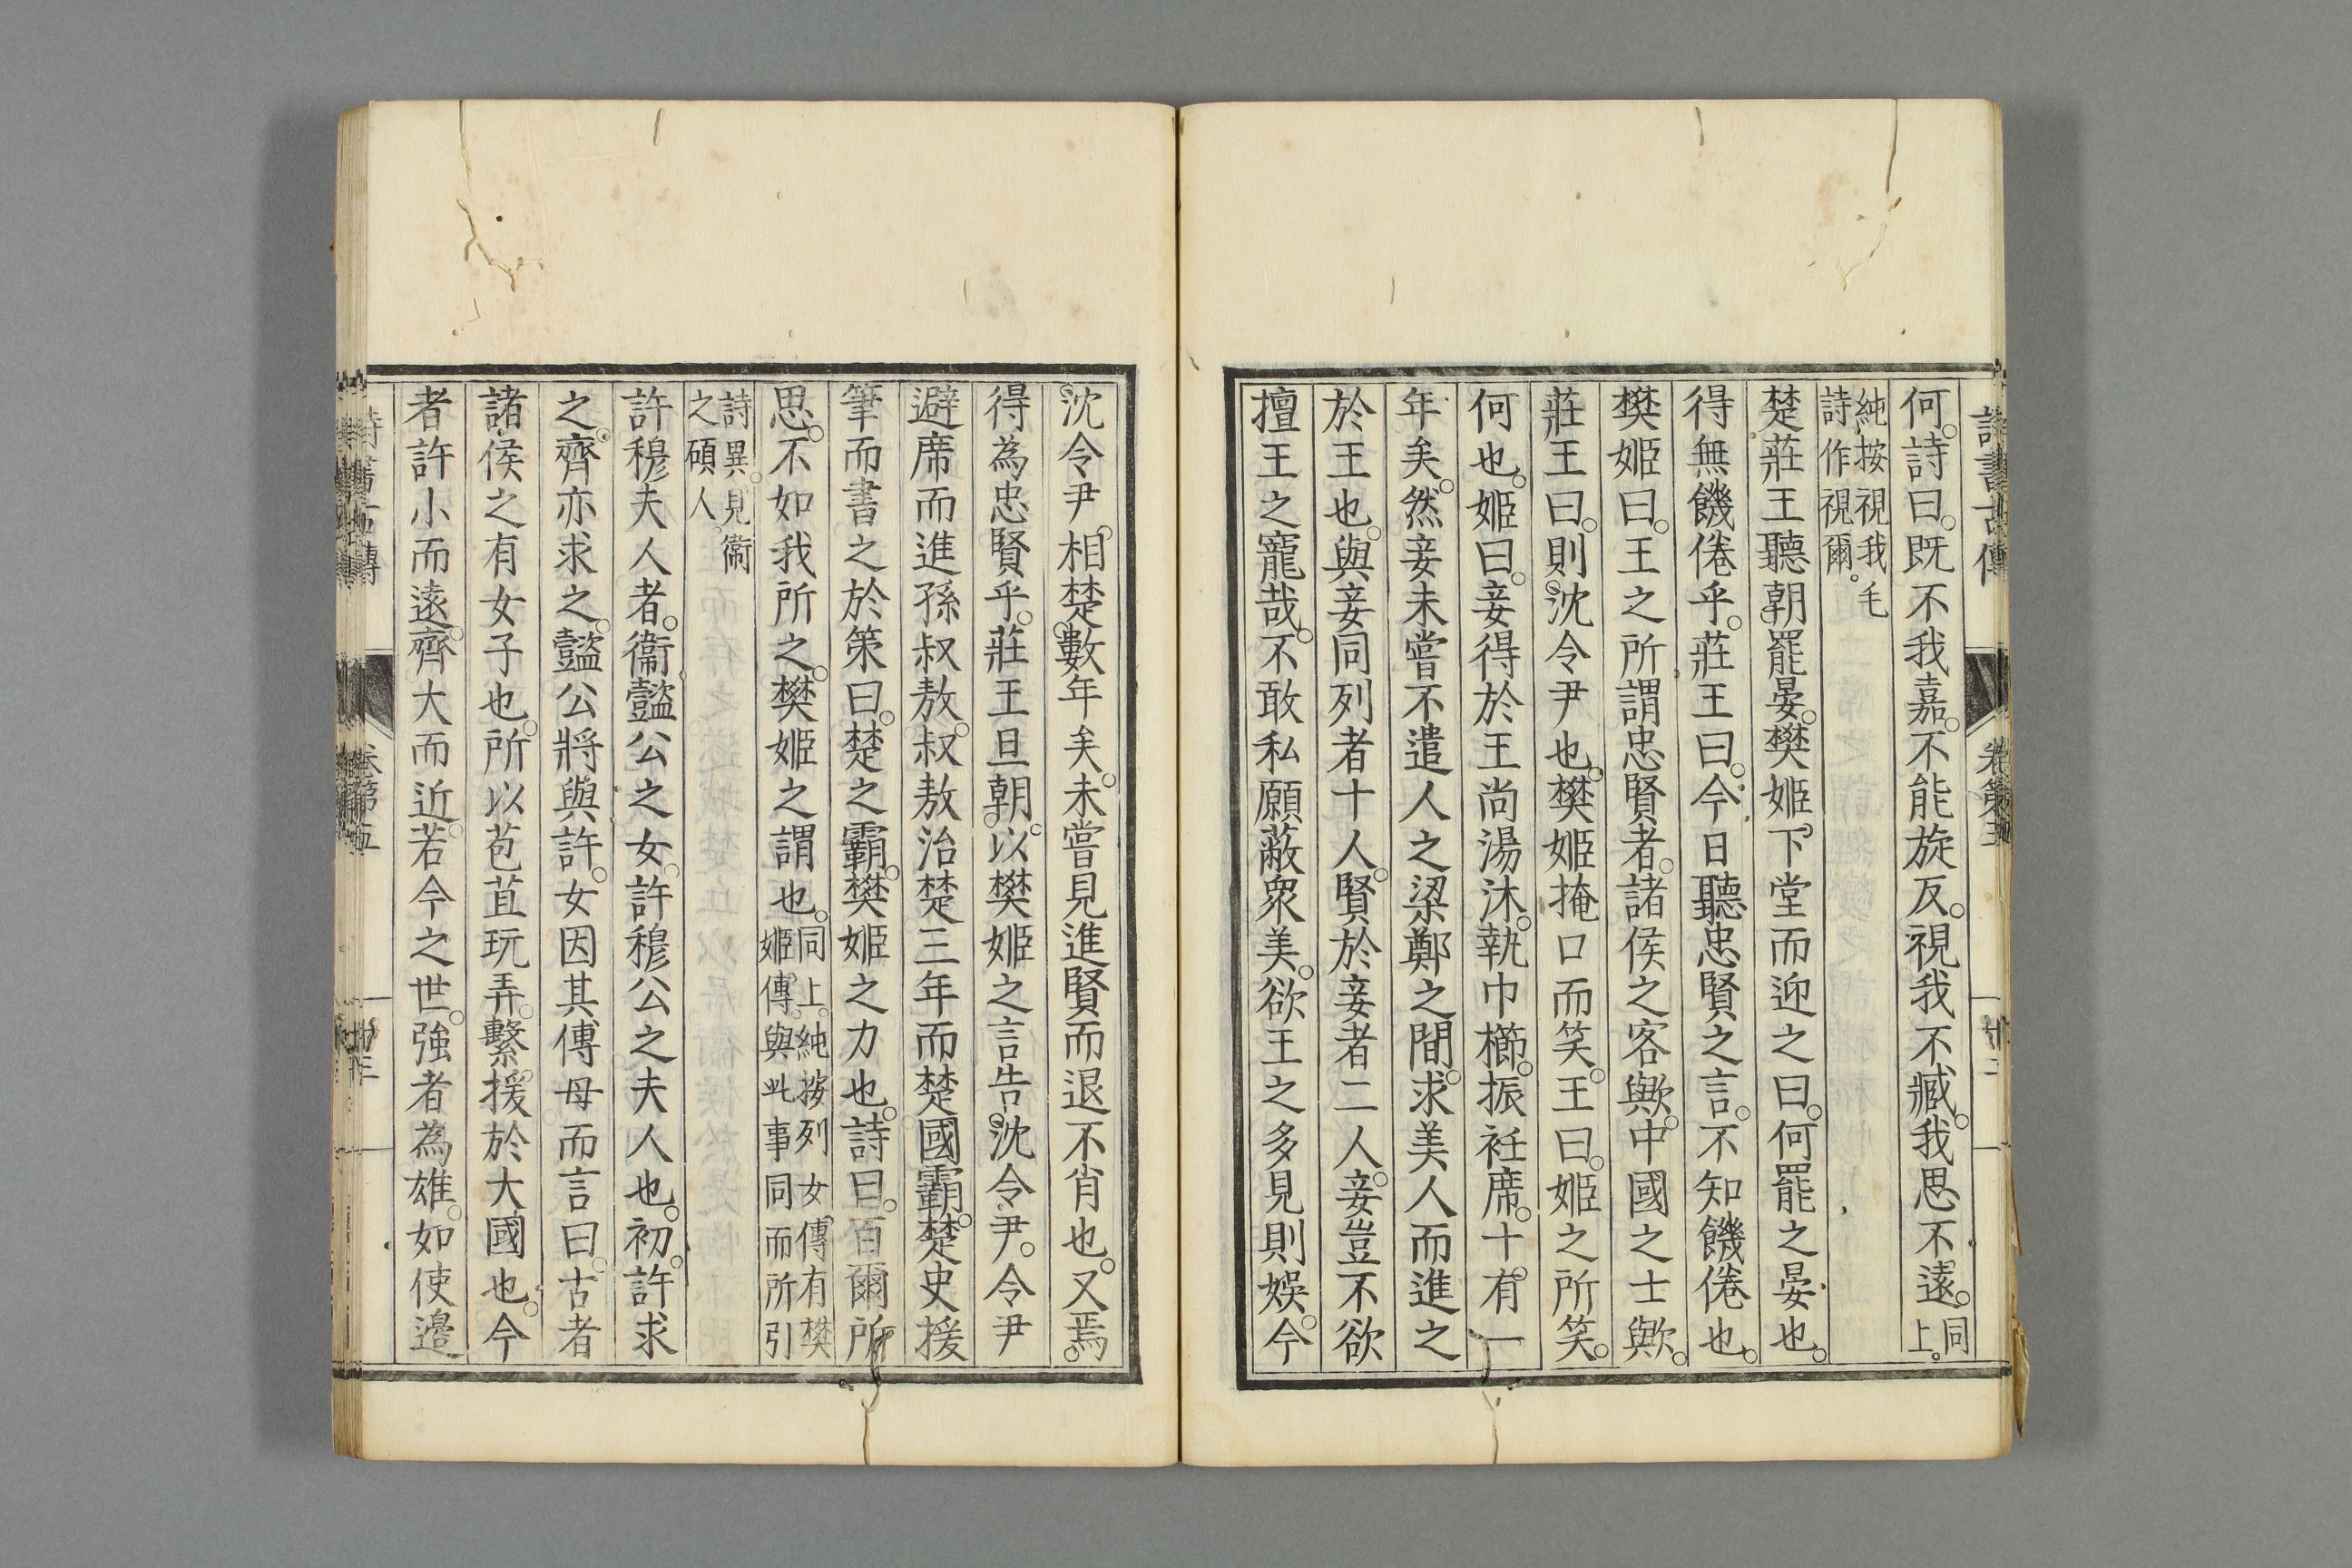 何。詩曰。既不我嘉。不能旋反。視我不臧。我思不遠。同上。
純按視我毛
詩作視爾。
楚莊王聽朝罷晏。樊姬下堂而迎之曰。何罷之晏也。
得無饑倦乎。莊王曰。今日聽忠賢之言。不知饑倦也。
樊姬曰。王之所謂忠賢者。諸侯之客歟。中國之士歟。
莊王曰。則沈令尹也。樊姬掩口而笑。王曰。姬之所笑。
何也。姬曰。妾得於王尚湯沐。執巾櫛。振衽席。十有一
年矣。然妾未嘗不遣人之梁鄭之間。求美人而進之
於王也。與妾同列者十人。賢於妾者二人。妾豈不欲
擅王之寵哉。不敢私願蔽眾美。欲王之多見則娛。今
沈令尹。相楚。數年矣。未嘗見進賢而退不肖也。又焉。
得為忠賢乎。莊王旦朝。以樊姬之言告。沈令尹。令尹
避席而進孫叔敖。叔敖治楚三年而楚國霸。楚史援
筆而書之於策曰。楚之霸。樊姬之力也。詩曰。百爾所
思。不如我所之。樊姬之謂也。同上。純按列女傳有樊
姬傳。與此事同而所引
詩異。見衞
之碩人
許穆夫人者。衞懿公之女。許穆公之夫人也。初。許求
之。齊亦求之。懿公將與許。女因其傅母而言曰。古者
諸侯之有女子也。所以苞苴玩弄。繫援於大國也。今
者許小而遠。齊大而近。若今之世。強者為雄。如使邊